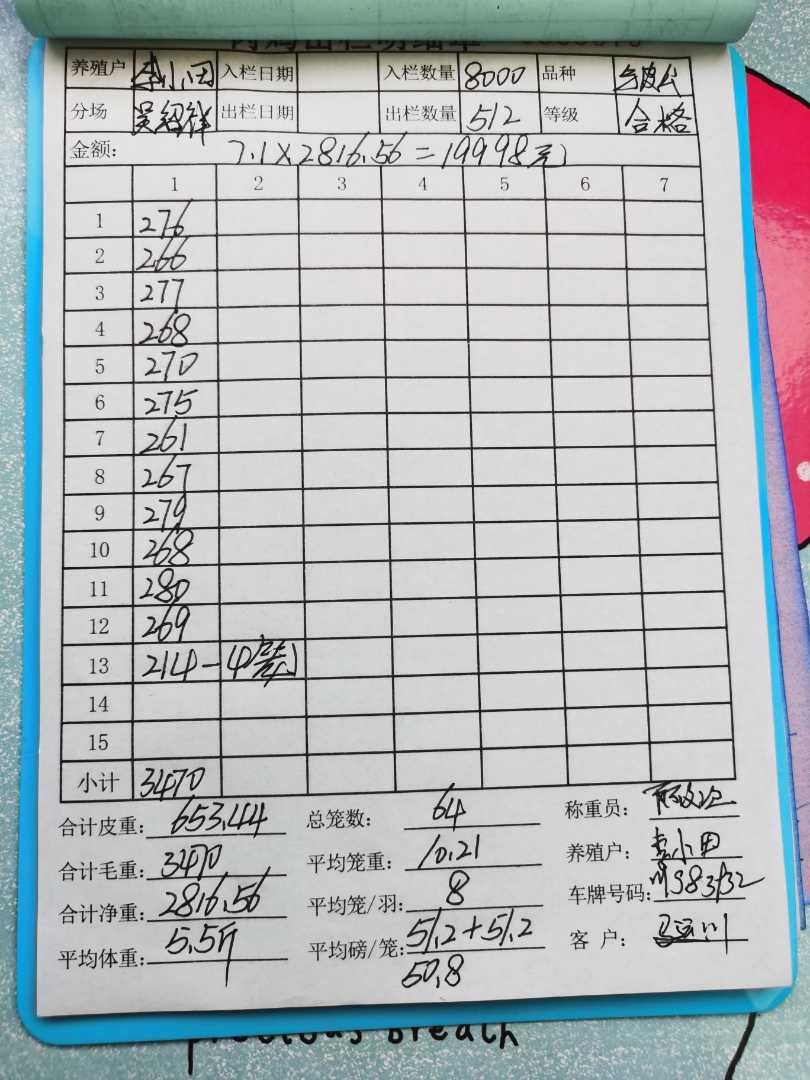 养殖户 李小田 入栏日期 入栏数量 8000 品种
分场 吴绍祥 出栏日期 出栏数量 512 等级 合格
金额: 7.1×2816.56=19998元
1 2 3 4 5 6 7
1 276
2 266
3 277
4 268
5 270
6 275
7 261
8 267
9 279
10 268
11 280
12 269
13 214-4笼
14
15
小计 3470
合计皮重: 653.44 总笼数: 64 称重员:
合计毛重: 3470 平均笼重: 10.21 养殖户: 李小田
合计净重: 2816.56 平均笼/羽: 8 车牌号码:
平均体重: 5.5斤 平均磅/笼: 51.2+51.2 客 户:
50.8
precious Breath